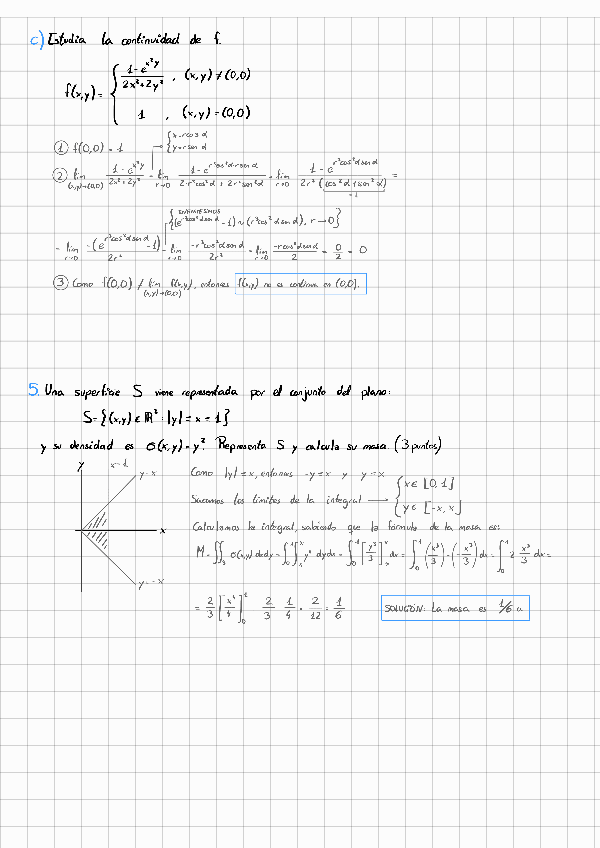 c) Estudia la continuidad de f.
f(x,y) = { 1-e^{x²y} / 2x²+2y² , (x,y) ≠ (0,0)
1 , (x,y) = (0,0)
① f(0,0) = 1 → { x=r cos α
y=r sen α
② lim (x,y)→(0,0) 1-e^{x²y} / 2x²+2y² = lim r→0 1-e^{r²cos²α·r sen α} / 2·r²cos²α + 2r²sen²α = lim r→0 1-e^{r³cos²α sen α} / 2r²(cos²α+sen²α) =
=1
{ INFINITÉSIMOS
(e^{r³cos²α sen α} -1) ≈ (r³cos²α sen α), r→0 }
= lim r→0 -(e^{r³cos²α sen α} -1) / 2r² = lim r→0 -r³cos²α sen α / 2r² = lim r→0 -r cos²α sen α / 2 = 0/2 = 0
③ Como f(0,0) ≠ lim (x,y)→(0,0) f(x,y), entonces f(x,y) no es continua en (0,0).
5. Una superficie S viene representada por el conjunto del plano:
S={(x,y) ∈ ℝ² : |y| = x = 1}
y su densidad es σ(x,y) = y². Representa S y calcula su masa. (3 puntos)
y x=1
y=x
x
y=-x
Como |y| = x, entonces -y=x y y=x
Sacamos los límites de la integral → { x ∈ [0,1]
y ∈ [-x,x]
Calculamos la integral, sabiendo que la fórmula de la masa es:
M = ∬_S σ(x,y) dxdy = ∫₀¹ ∫₋ₓˣ y² dydx = ∫₀¹ [y³/3]₋ₓˣ dx = ∫₀¹ (x³/3) - (-x³/3) dx = ∫₀¹ 2 x³/3 dx =
= 2/3 [x⁴/4]₀¹ = 2/3 · 1/4 = 2/12 = 1/6
SOLUCIÓN: La masa es 1/6 u.